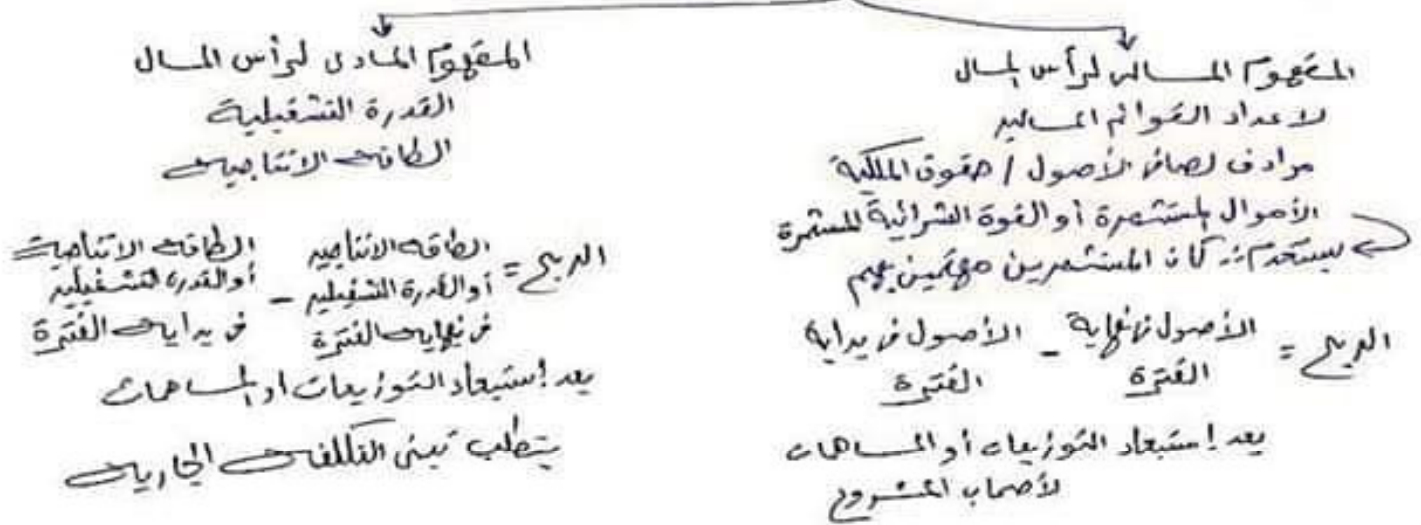 المفهوم المالى لرأس المال
لاعداد القوائم المالية
مرادف لصافى الأصول / حقوق الملكية
الأموال المستثمرة أو القوة الشرائية المستثمرة
يستخدم إذا كان المستثمرين مهتمين بهم
الربح = الأصول فى نهاية الفترة - الأصول فى بداية الفترة
بعد إستبعاد التوزيعات أو المساهمات
لأصحاب المشروع
المفهوم المادى لرأس المال
القدرة التشغيلية
الطاقة الانتاجية
الربح = الطاقة الانتاجية أو القدرة التشغيلية فى نهاية الفترة - الطاقة الانتاجية أو القدرة التشغيلية فى بداية الفترة
بعد إستبعاد التوزيعات او المساهمات
يتطلب تبنى التكلفة الجارية